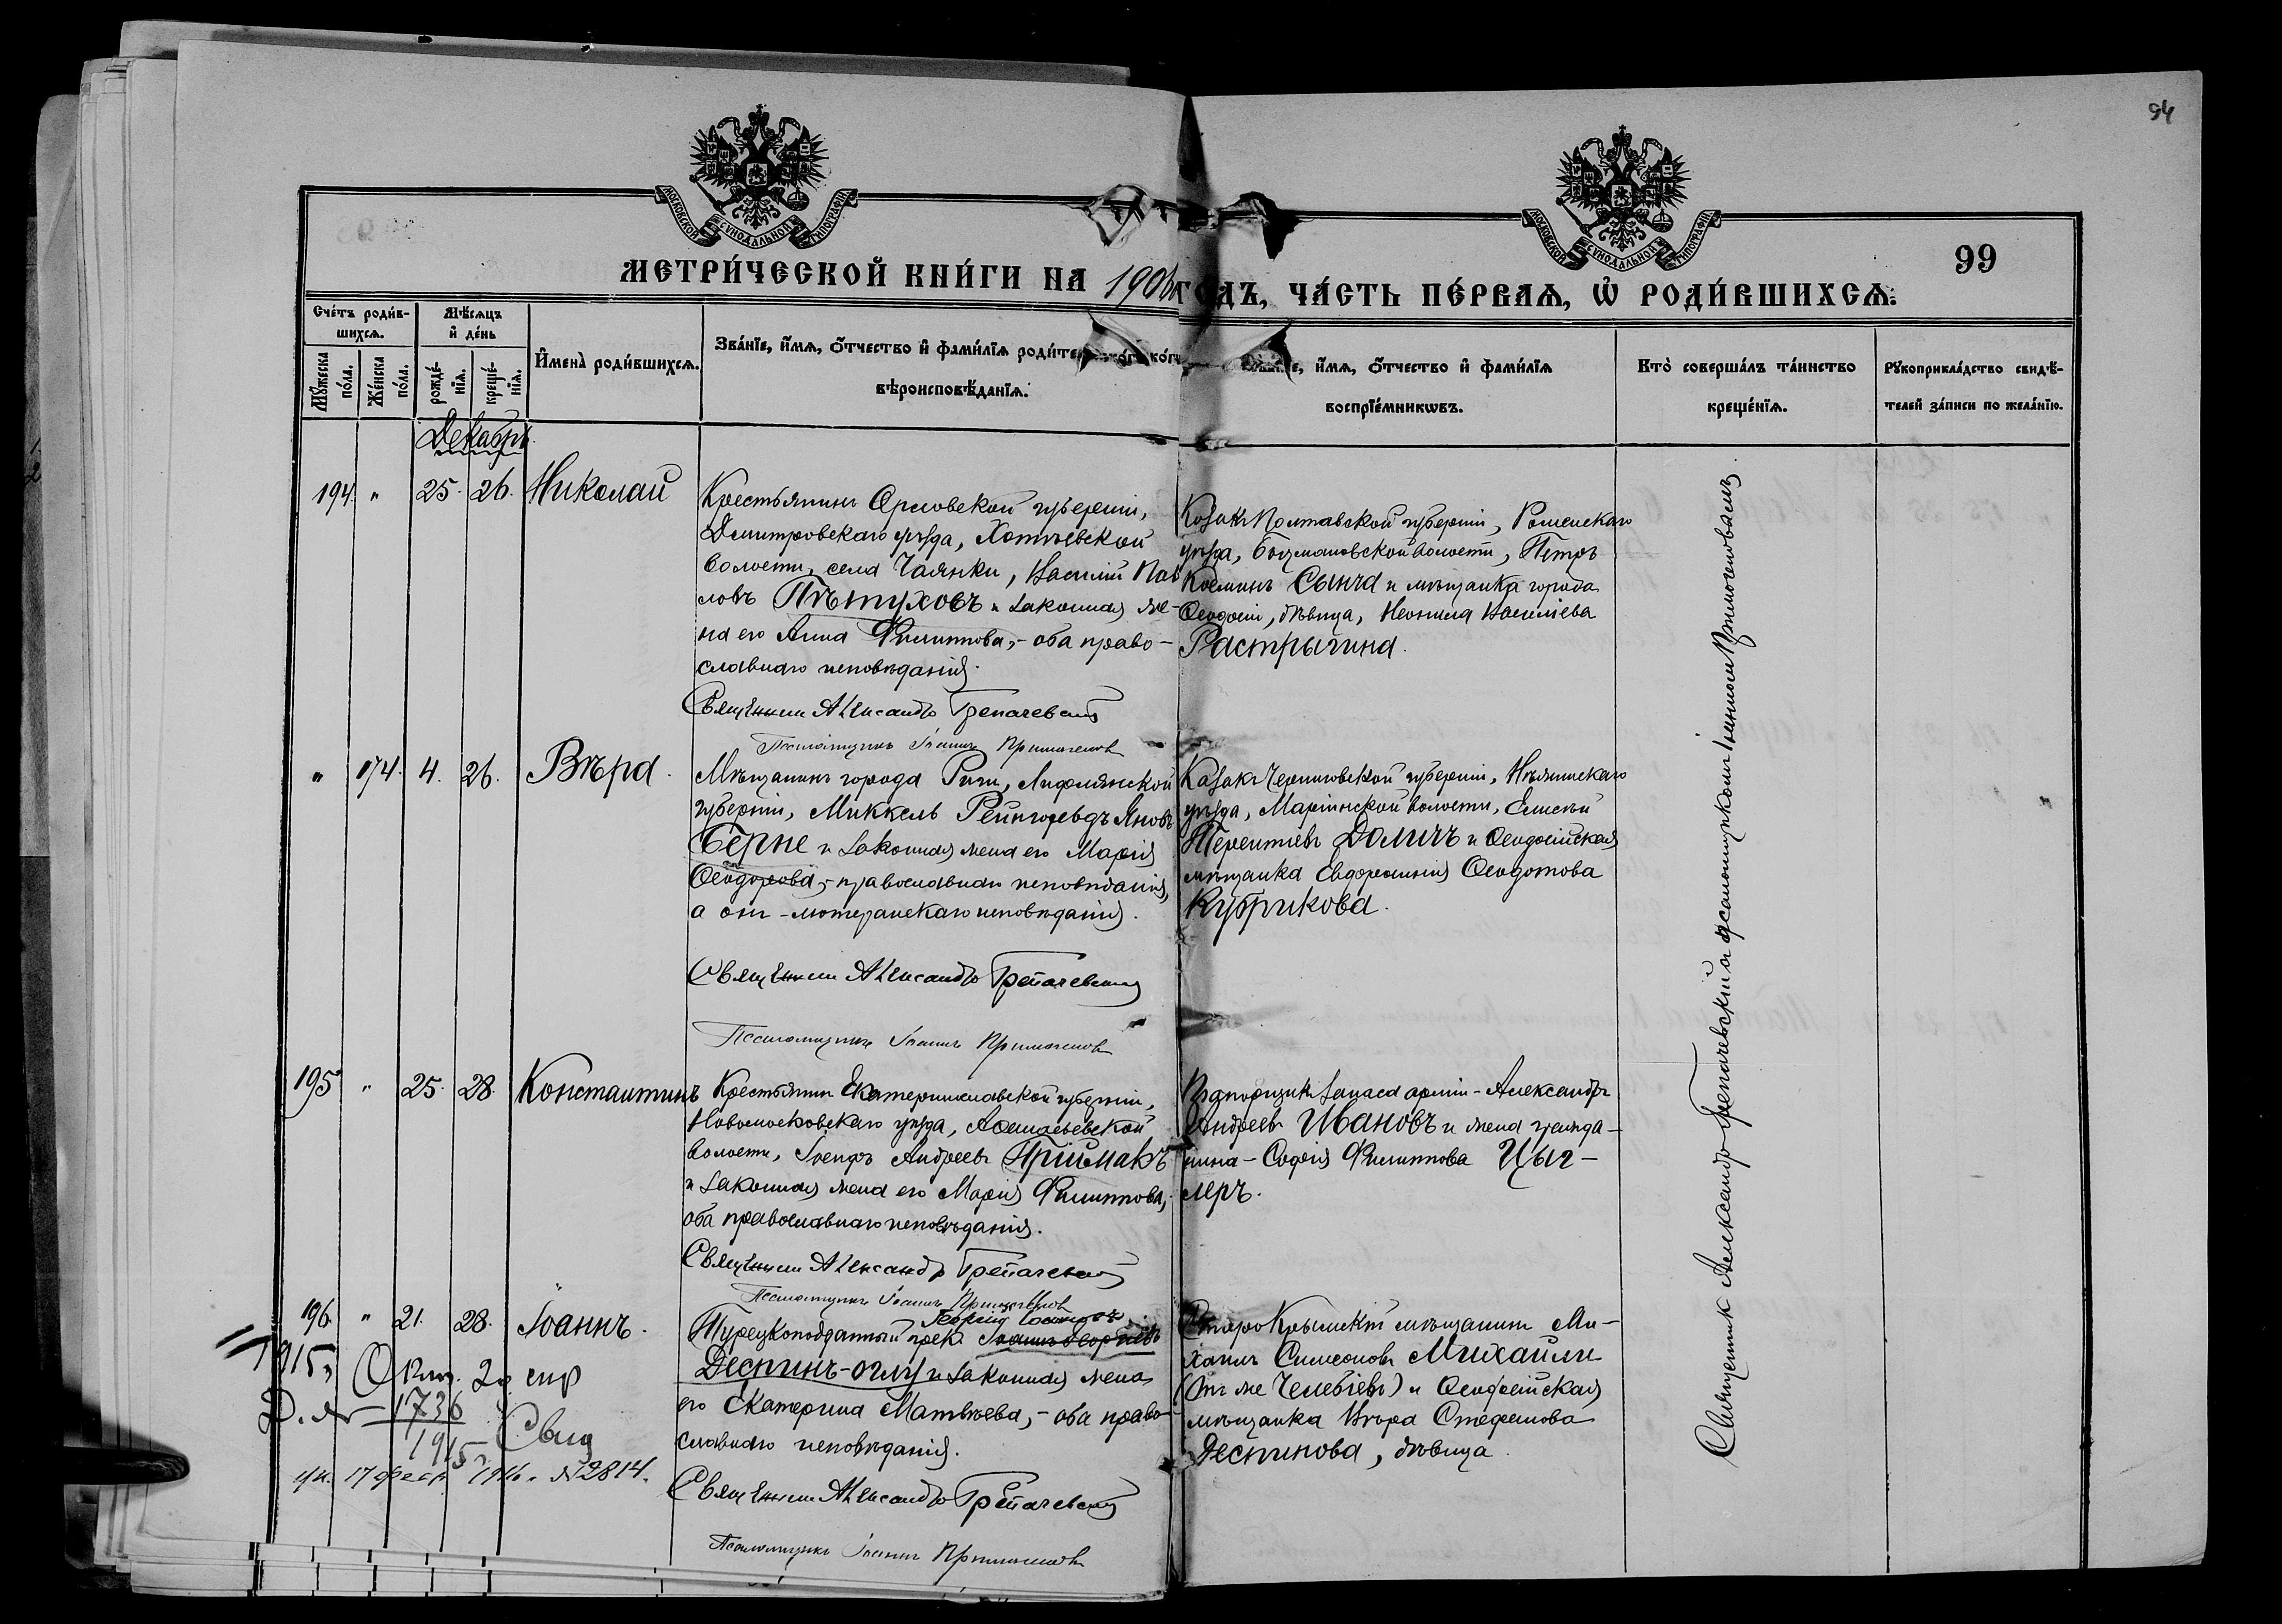 94
МОСКОВСКОЙ СУНОДАЛЬНОЙ ТИПОГРАФІИ
МОСКОВСКОЙ СУНОДАЛЬНОЙ ТИПОГРАФІИ
99
МЕТРИ́ЧЕСКОЙ КНИ́ГИ НА 1908 ГОДЪ, ЧА́СТЬ ПЕ́РВАѦ, Ѡ҆ РОДИ́ВШИХСѦ.
Сче́тъ роди́в-
шихсѧ.
Мѣ́сѧцъ
и҆ де́нь
Мꙋ́жеска
по́ла.
Же́нска
по́ла.
рожде́-
нїѧ.
креще́-
нїѧ.
И҆мена̀ роди́вшихсѧ.
Зва́нїе, и҆́мѧ, ѻ҆́тчество и҆ фами́лїѧ роди́те
вѣроисповѣ́данїѧ.
и҆́мѧ, ѻ҆́тчество и҆ фами́лїѧ
воспрїе́мникѡвъ.
Кто̀ соверша́лъ та́инство
креще́нїѧ.
Рꙋкоприкла́дство свидѣ́-
телей за́писи по жела́нїю.
Декабрь.
194. " 25. 26. Николай
Крестьянинъ Орловской губерніи,
Дмитровскаго уѣзда, Хотьевской
волости, села Чаянки, Василій Пав
ловъ Пѣтуховъ и законная же-
на его Анна Филиппова,- оба право-
славнаго исповѣданія.
Священникъ Александръ Трепачевскій
Псаломщикъ Іоаннъ Примогеновъ
Козакъ Полтавской губерніи, Роменскаго
уѣзда, волости, Петръ
Косминъ Сынча и мѣщанка города
Ѳеодосіи, дѣвица, Неонила Василіева
Растрыгина.
" 174. 4. 26. Вѣра.
Мѣщанинъ города Риги, Лифляндской
губерніи, Миккель Яновъ
Берне и законная жена его Марія
Ѳеодорова,- православнаго исповѣданія,
а онъ - лютеранскаго исповѣданія.
Священникъ Александръ Трепачевскій
Псаломщикъ Іоаннъ Примогеновъ
Казакъ Черниговской губерніи, Нѣжинскаго
уѣзда, Маріинской волости, Елисей
Терентіевъ Долинъ и Ѳеодосійская
мѣщанка Евфросинія Ѳеодотова
Кубрикова.
195 " 25. 28. Константинъ
Крестьянинъ Екатеринославской губерніи,
Новомосковскаго уѣзда,
волости, Іосифъ Андреевъ Пріймакъ
и законная жена его Марія Филиппова,
оба православнаго исповѣданія.
Священникъ Александръ Трепачевскій
Псаломщикъ Іоаннъ Примогеновъ
Прапорщикъ запаса арміи - Александръ
Андреевъ Ивановъ и жена гражда-
нина - Софія Филиппова Цыг-
леръ.
196. " 21. 28. Іоаннъ.
Георгій Іоанновъ
Турецкоподданный грекъ Іоаннъ Георгіевъ
Деспинъ-оглу и законная жена
его Екатерина Матвѣева,- оба право-
славнаго исповѣданія.
Священникъ Александръ Трепачевскій
Псаломщикъ Іоаннъ Примогеновъ
СтароКрымскій мѣщанинъ Ми-
хаилъ Симеоновъ Михайли
(онъ же Челебіевъ) и Ѳеодосійская
мѣщанка Вѣра Стефанова
Деспинова, дѣвица.
1915 Окт. 29
Д. № 1736
1915 Свид
17 фев. 1916 г. № 2814.
Священник Александръ Трепачевскій съ псаломщикомъ Іоанномъ Примогеновымъ.